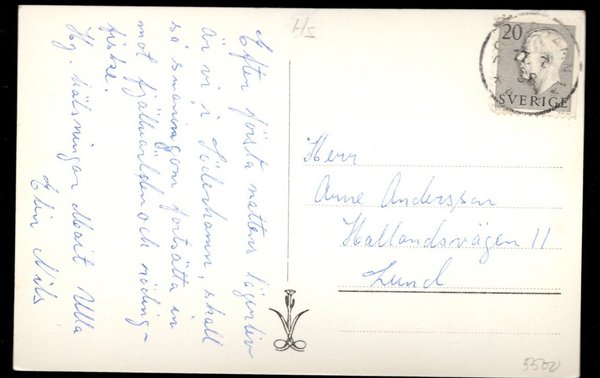 Efter första nattens lägerliv
är vi i Söderhamn, skall
så småningom fortsätta in
mot fjällvärlden och röding-
fiske.
Hj. hälsningar Marit Ulla
Elin Nils
H/S
20
SVERIGE
Herr
Arne Andersson
Hallandsvägen 11
Lund
5500